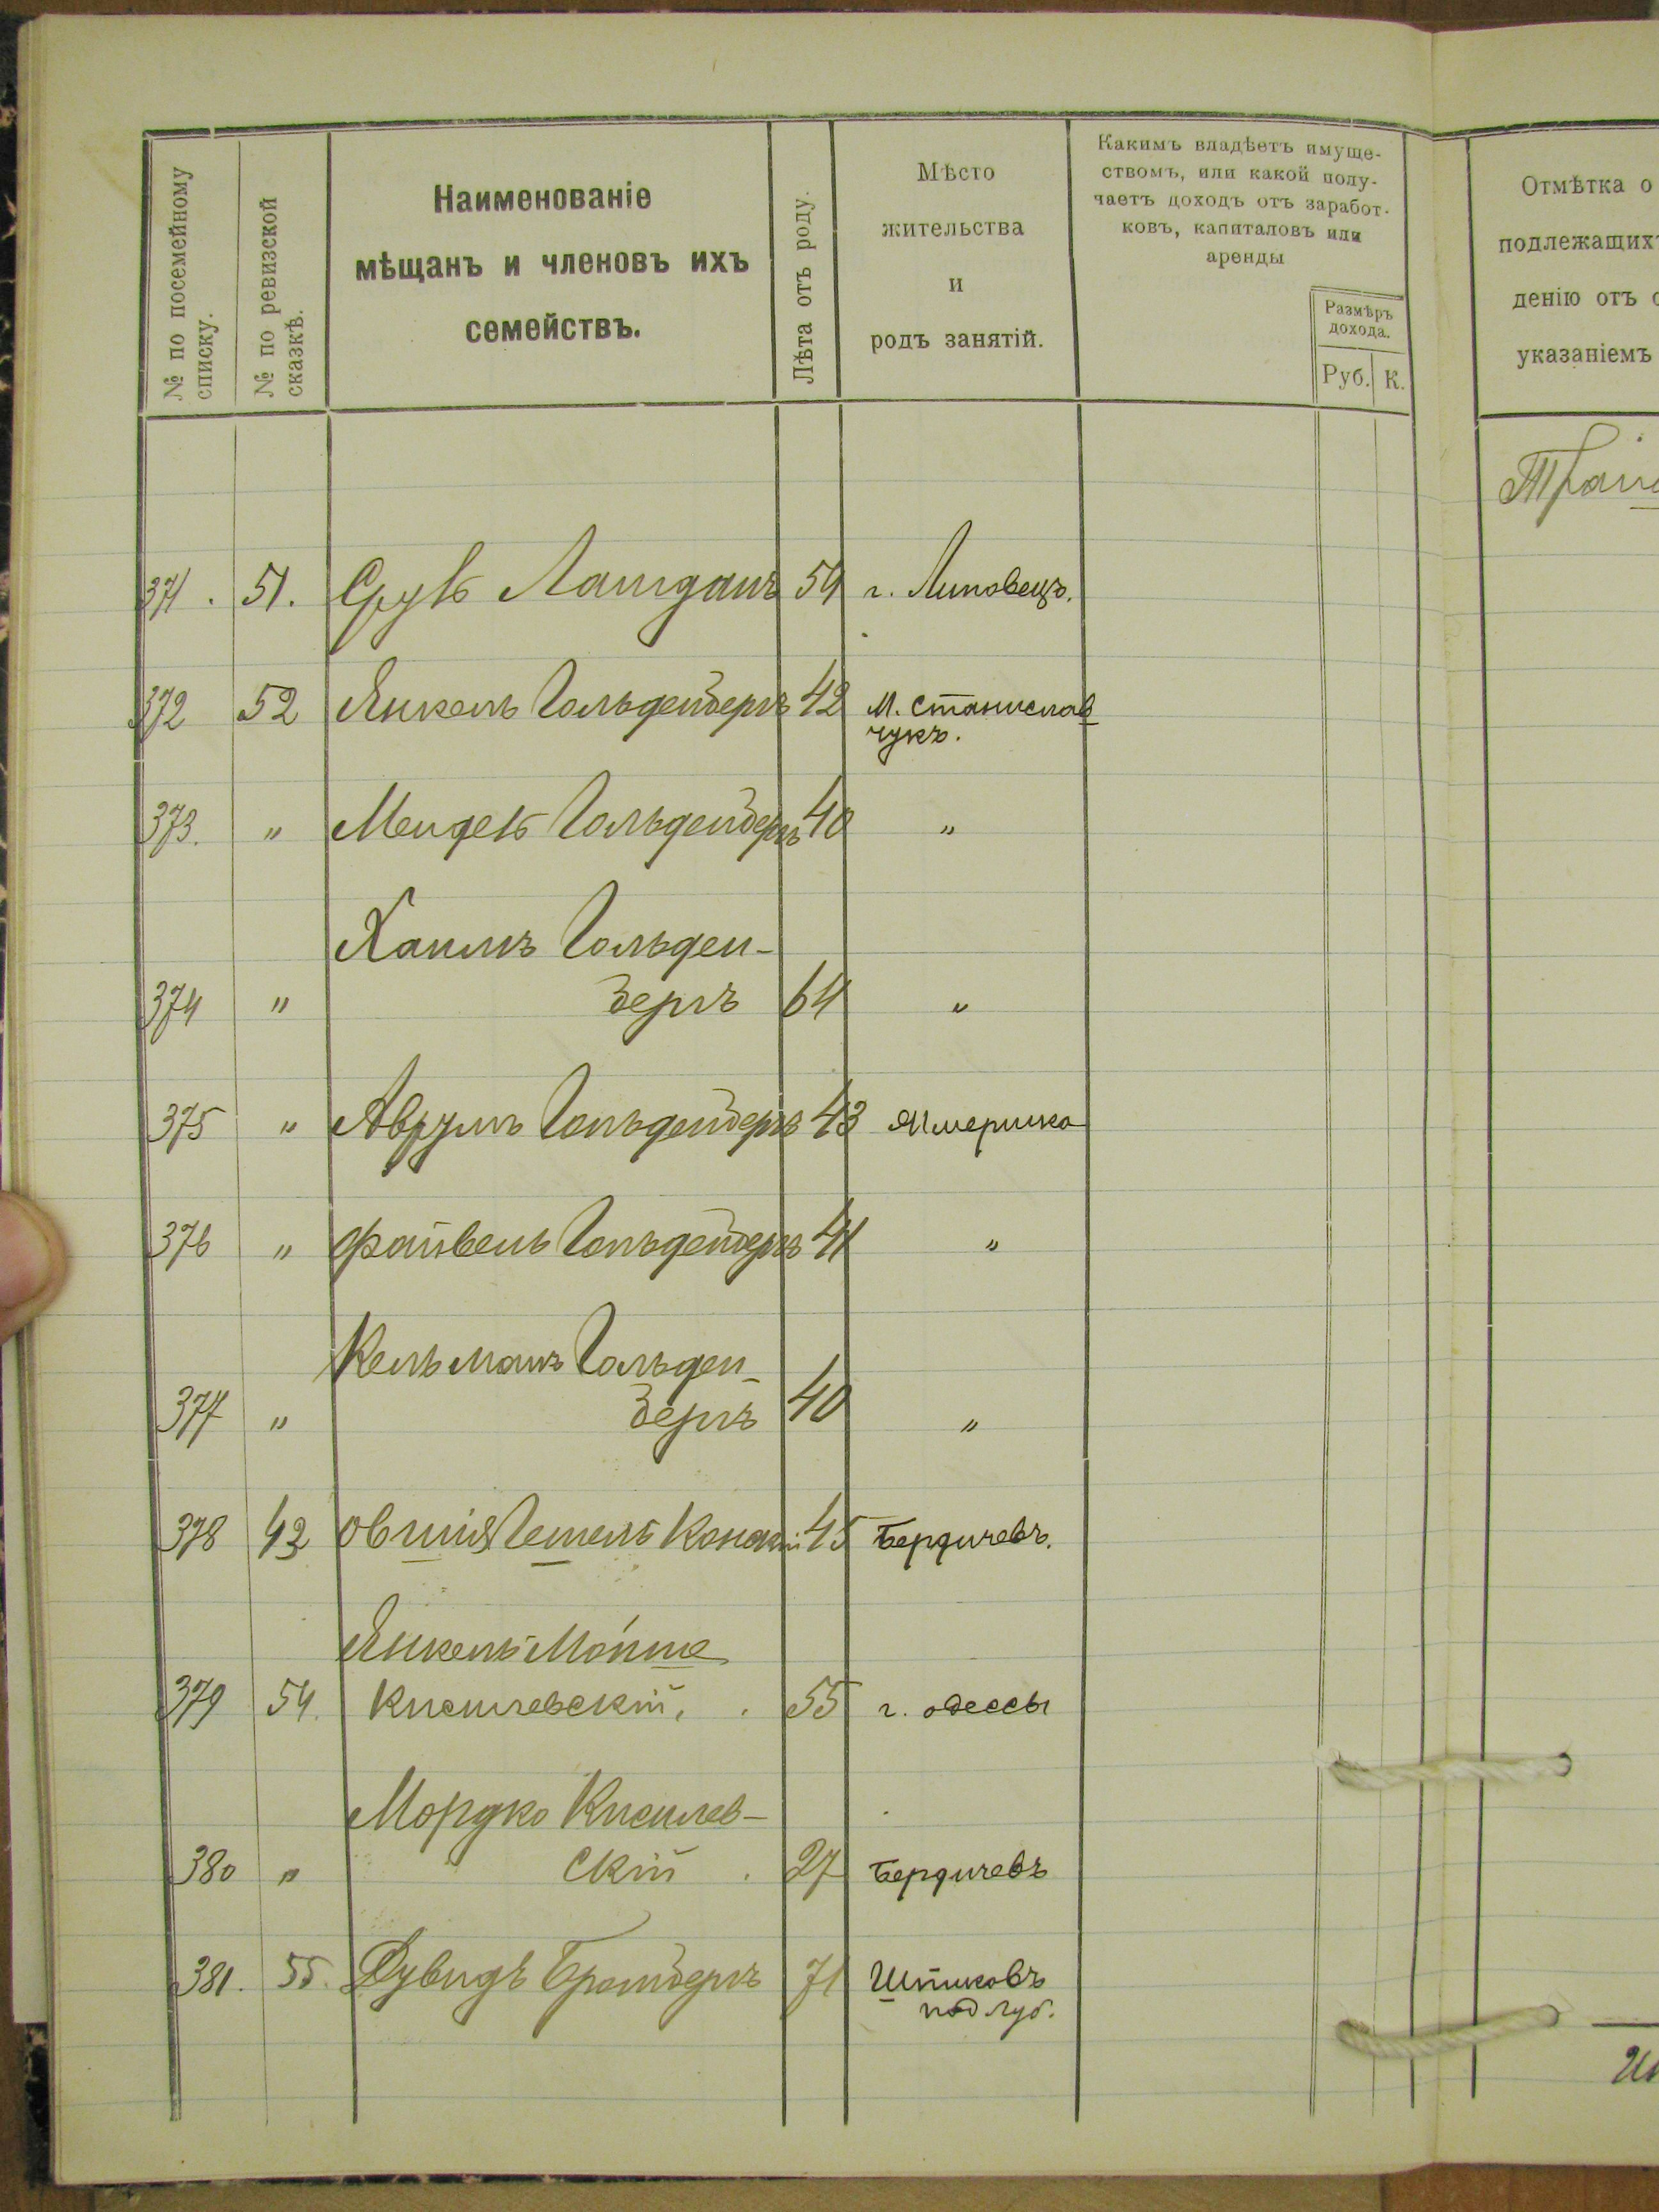 № по посемейному
списку.
№ по ревизской
сказкѣ.
Наименованіе
мѣщанъ и членовъ ихъ
семействъ.
Лѣта отъ роду.
Мѣсто
жительства
и
родъ занятій.
Какимъ владѣетъ имуще-
ствомъ, или какой полу-
чаетъ доходъ отъ заработ-
ковъ, капиталовъ или
аренды
Размѣръ
дохода.
Руб. К.
Отмѣтка о
подлежащихъ
денію отъ
указаніемъ
371. 51. Сруль 54 г. Липовецъ.
372 52 Янкель Гольденбергъ 42 м. Станислав
чукъ.
373. " Мендель Гольденбергъ 40 "
Хаимъ Гольден-
374 " бергъ 64 "
375 " Аврумъ Гольденбергъ 43 Америка
376 " Файвель Гольденбергъ 41 "
Кельманъ Гольден-
377 " бергъ 40 "
378 43 Овшія Гешель 45 Бердичевъ.
Янкель Мойше
379 54. Кисилевскій. 55 г. Одессы
Мордко Кисилев-
380 " скій . 27 Бердичевъ
381. 55. Дувидъ 71 Шпиковъ
под. губ.